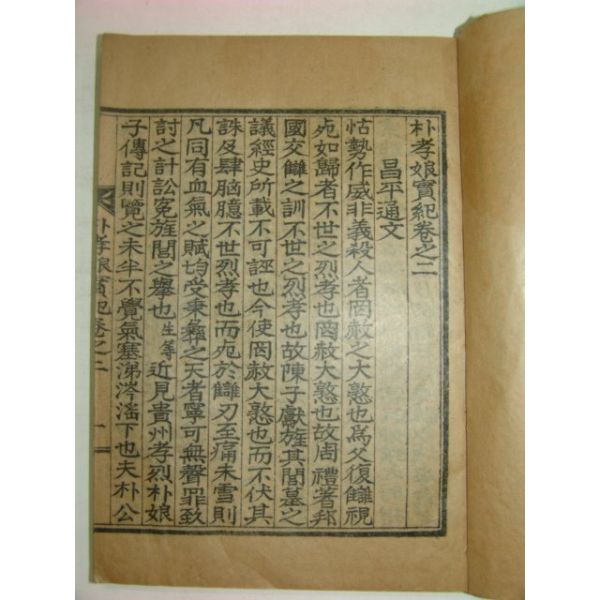 朴孝娘實紀卷之二
昌平通文
怙勢作威非義殺人者罔赦之大憝也爲父復讎視
死如歸者不世之烈孝也罔赦大憝也故周禮著邦
國交讎之訓不世之烈孝也故陳子獻旌其閭墓之
議經史所載不可誣也今使罔赦大憝也而不伏其
誅反肆腦臆不世烈孝也而死於讎刃至痛未雪則
凡同有血氣之賦均受秉彝之天者寧可無聲罪致
討之計訟寃旌閭之擧也生等近見貴州孝烈朴娘
子傳記則覽之未半不覺氣塞涕泗滛下也夫朴公
朴孝娘實紀卷之二
一